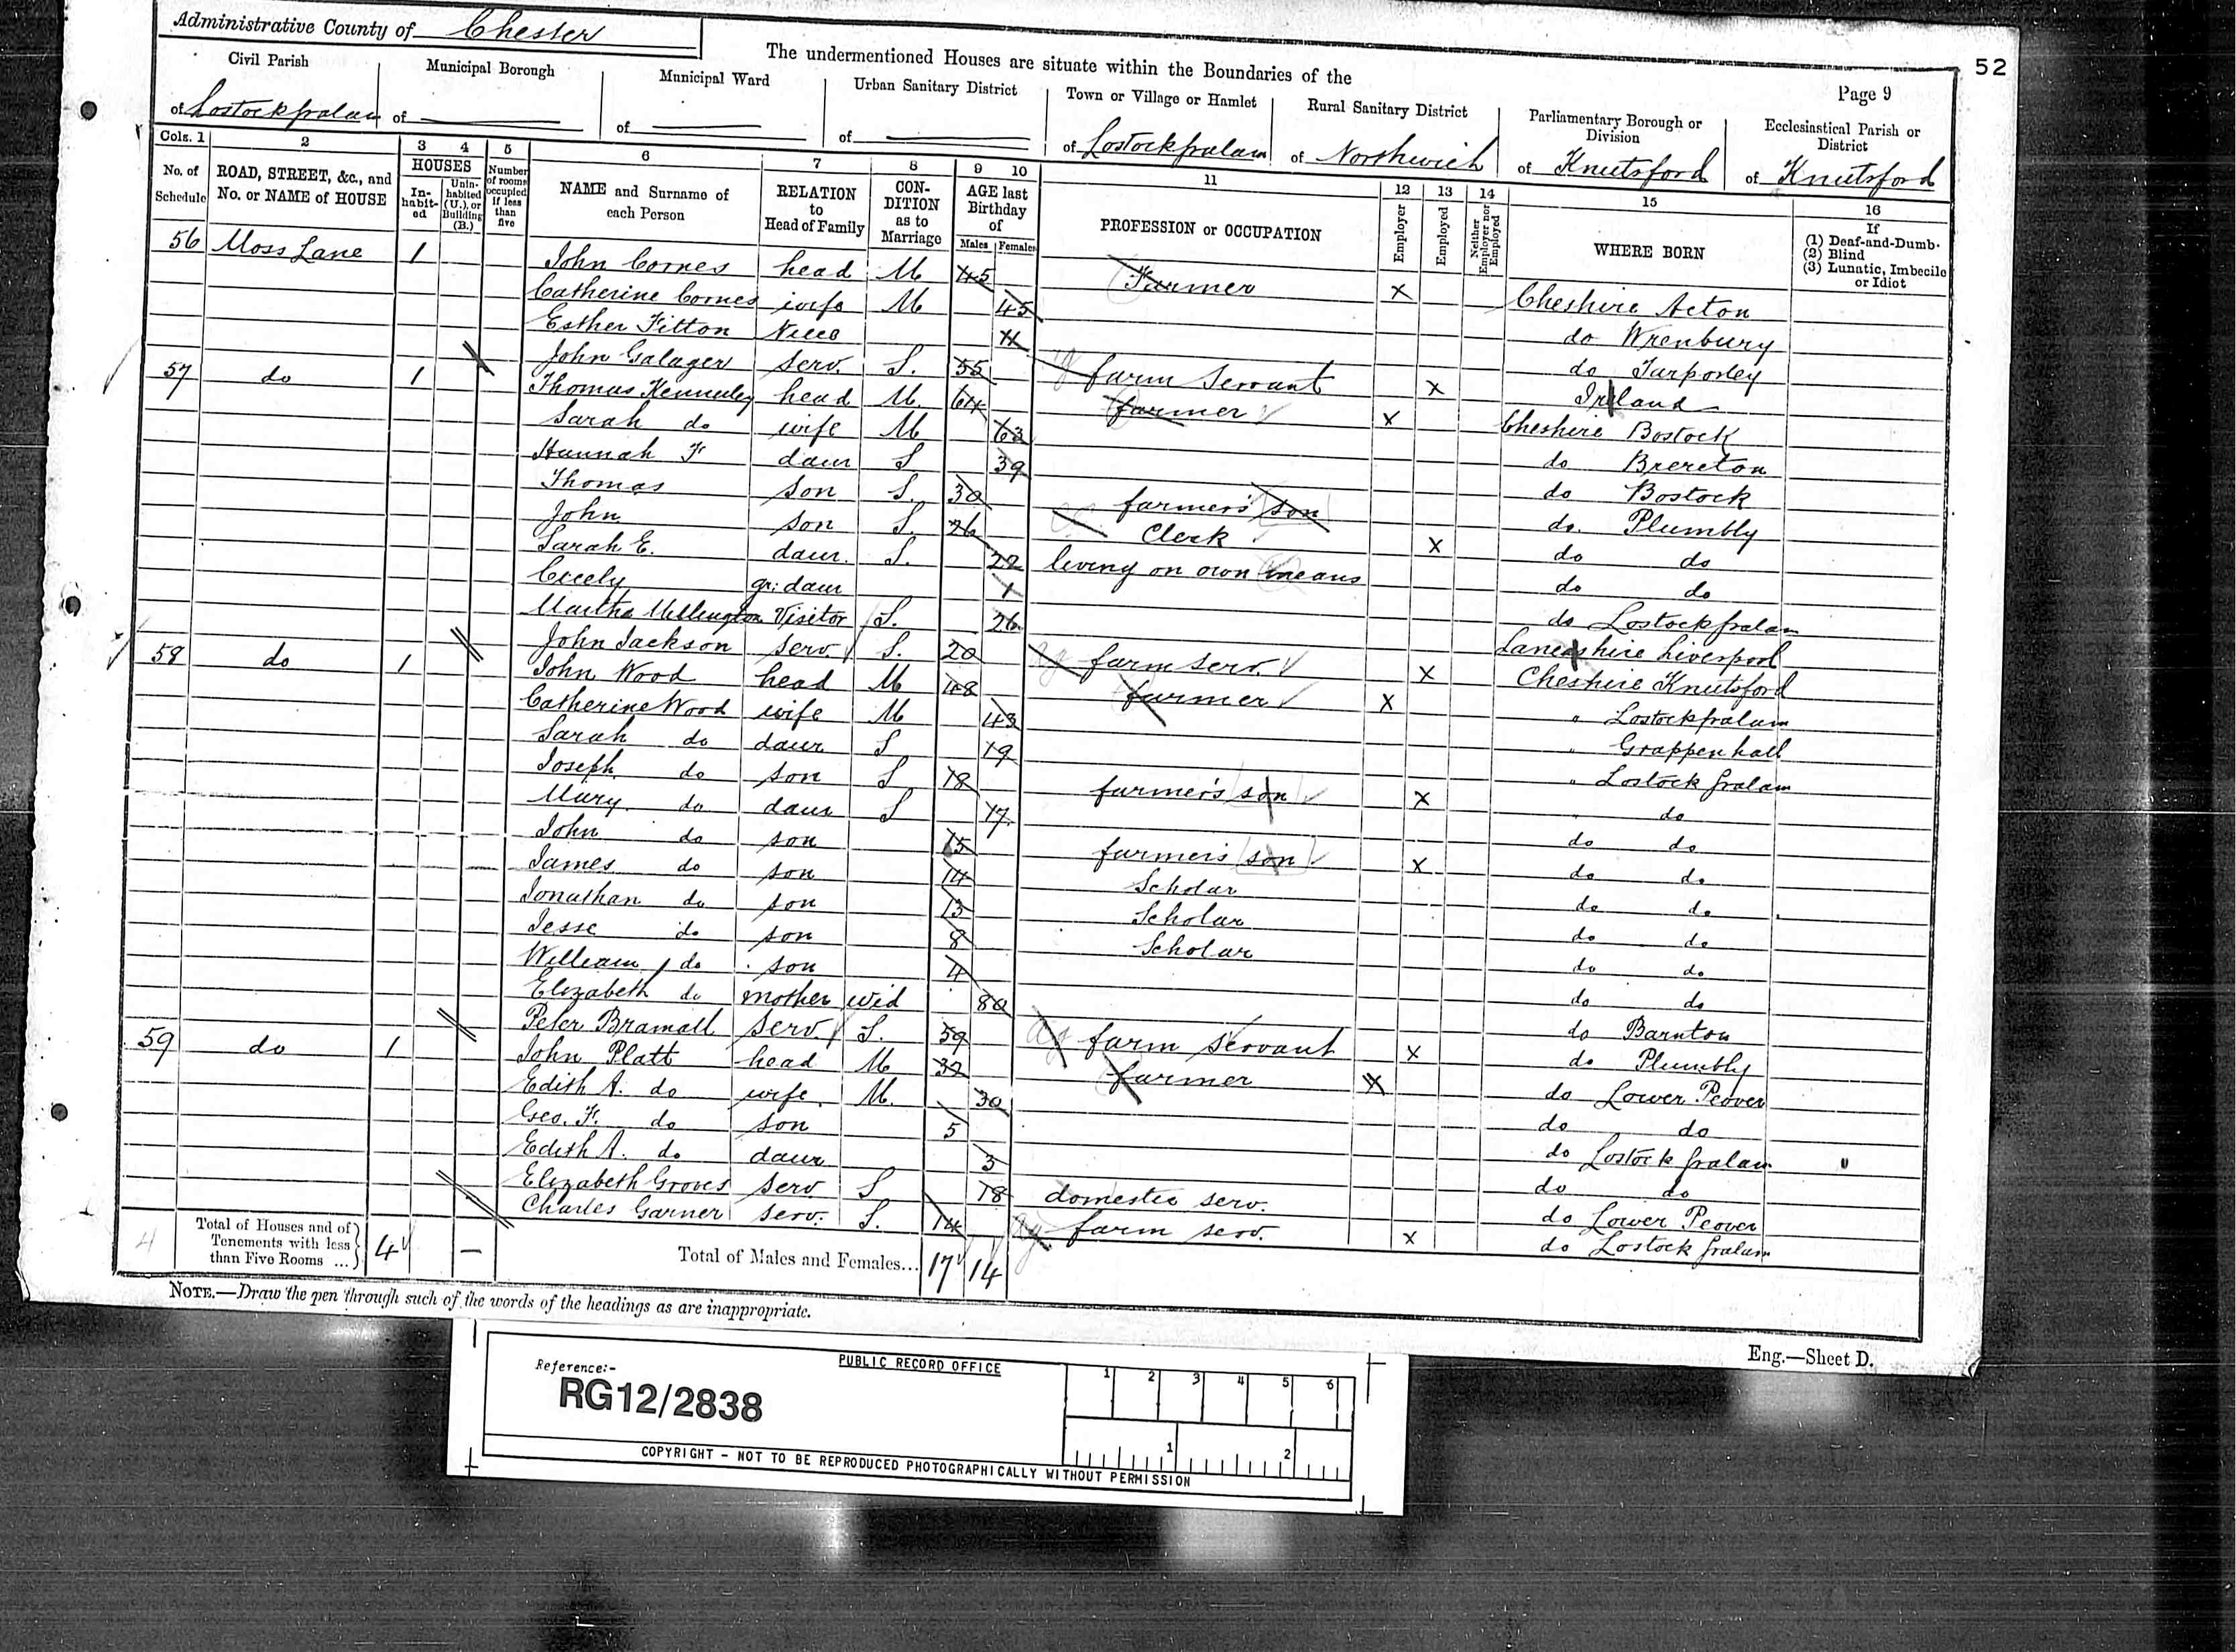 Administrative County of Chester
52
The undermentioned Houses are situate within the Boundaries of the
Page 9
Civil Parish of Lostockgralam
Municipal Borough of
Municipal Ward of
Urban Sanitary District of
Town or Village or Hamlet of Lostockgralam
Rural Sanitary District of Northwich
Parliamentary Borough or Division of Knutsford
Ecclesiastical Parish or District of Knutsford
Cols. 1 2 3 4 5 6 7 8 9 10 11 12 13 14 15 16
No. of Schedule
ROAD, STREET, &c., and No. or NAME of HOUSE
HOUSES
In-habit-ed
Unin-habited (U.), or Building (B.)
Number of rooms occupied if less than five
NAME and Surname of each Person
RELATION to Head of Family
CON-DITION as to Marriage
AGE last Birthday of
Males Females
PROFESSION or OCCUPATION
Employer
Employed
Neither Employer nor Employed
WHERE BORN
If (1) Deaf-and-Dumb (2) Blind (3) Lunatic, Imbecile or Idiot
56 Moss Lane 1 John Cornes head M 45 Farmer X Cheshire Acton
Catherine Cornes wife M 45 do Wrenbury
Esther Fitton Niece 11 do Tarporley
John Galager serv. S. 55 farm Servant X Ireland
57 do 1 Thomas Kennerley head M 64 farmer X Cheshire Bostock
Sarah do wife M 63 do Brereton
Hannah F daur S 39 do Bostock
Thomas son S. 30 farmer's son do. Plumbly
John son S. 26 Clerk X do do
Sarah E. daur. S. 22 living on own means do do
Cicely gr: daur 1 do Lostockgralam
Martha Millington Visitor S. 26 Lancashire Liverpool
John Jackson serv S. 20 ag farm serv. X Cheshire Knutsford
58 do 1 John Wood head M 48 farmer X " Lostockgralam
Catherine Wood wife M 43 " Grappenhall
Sarah do daur S 19 " Lostock gralam
Joseph do son S 18 farmer's son X " do
Mary do daur S 17 do do
John do son 15 farmer's son X do do
James do son 14 Scholar do do
Jonathan do son 13 Scholar do do
Jesse do son 8 Scholar do do
William do son 4 do do
Elizabeth do mother wid 80 do Barnton
Peter Bramall serv. S. 59 ag farm servant X do Plumbly
59 do 1 John Platt head M 32 farmer X do Lower Peover
Edith A. do wife M. 30 do do
Geo. F. do son 5 do Lostock gralam "
Edith A. do daur 3 do do
Elizabeth Groves serv S 18 domestic serv. do Lower Peover
Charles Garner serv. S. 14 ag farm serv. X do Lostock gralam
4 Total of Houses and of Tenements with less than Five Rooms ... 4 — Total of Males and Females... 17 14
NOTE.—Draw the pen through such of the words of the headings as are inappropriate.
Eng.—Sheet D.
Reference:-
PUBLIC RECORD OFFICE
1 2 3 4 5 6
RG12/2838
1 2
COPYRIGHT - NOT TO BE REPRODUCED PHOTOGRAPHICALLY WITHOUT PERMISSION